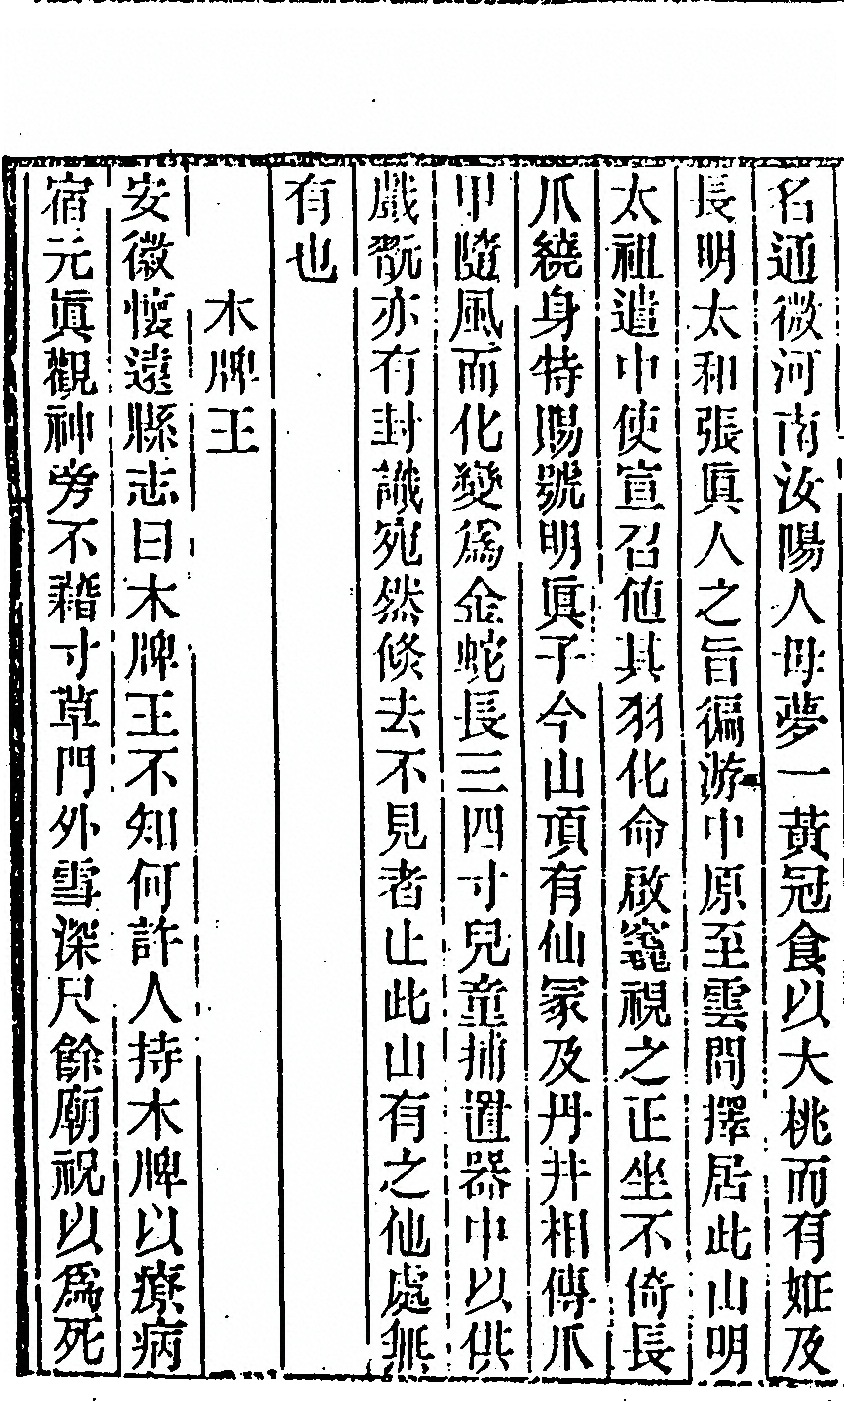 名通微河南汝陽人母夢一黃冠食以大桃而有娠及
長明太和張眞人之旨徧游中原至雲間擇居此山明
太祖遣中使宣召値其羽化命啟窆視之正坐不倚長
爪繞身特賜號明眞子今山頂有仙冢及丹井相傳爪
甲隨風而化變爲金蛇長三四寸兒童捕置器中以供
戲翫亦有封識宛然倐去不見者止此山有之他處無
有也
木牌王
安徽懷遠縣志曰木牌王不知何許人持木牌以療病
宿元眞觀神旁不藉寸草門外雪深尺餘廟祝以爲死